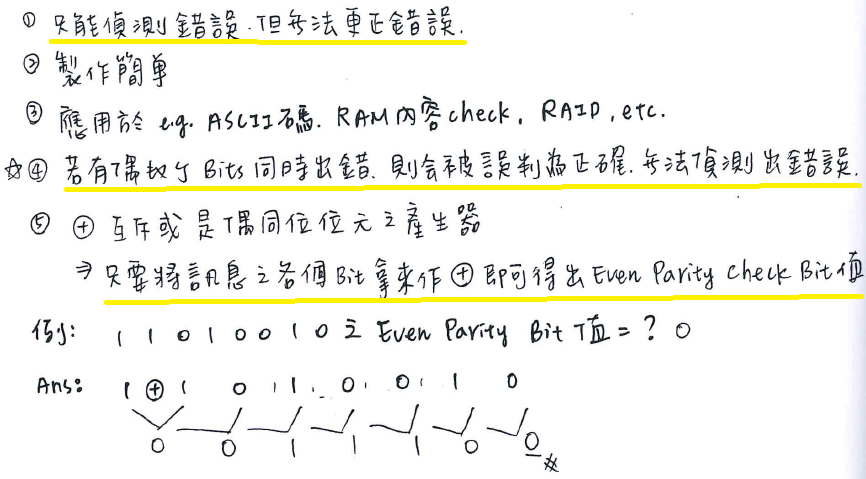 ① 只能偵測錯誤.但無法更正錯誤.
② 製作簡單
③ 應用於 e.g. ASCII碼. RAM內容check, RAID, etc.
☆④ 若有偶數個Bits同時出錯.則会被誤判為正確.無法偵測出錯誤.
⑤ ⊕ 互斥或是偶同位位元之產生器
⇒ 只要將訊息之各個Bit拿來作⊕即可得出Even Parity check Bit值
例: 1 1 0 1 0 0 1 0 之 Even Parity Bit值=? 0
Ans: 1 ⊕ 1 0 1 0 0 1 0
0 0 1 1 1 0 0